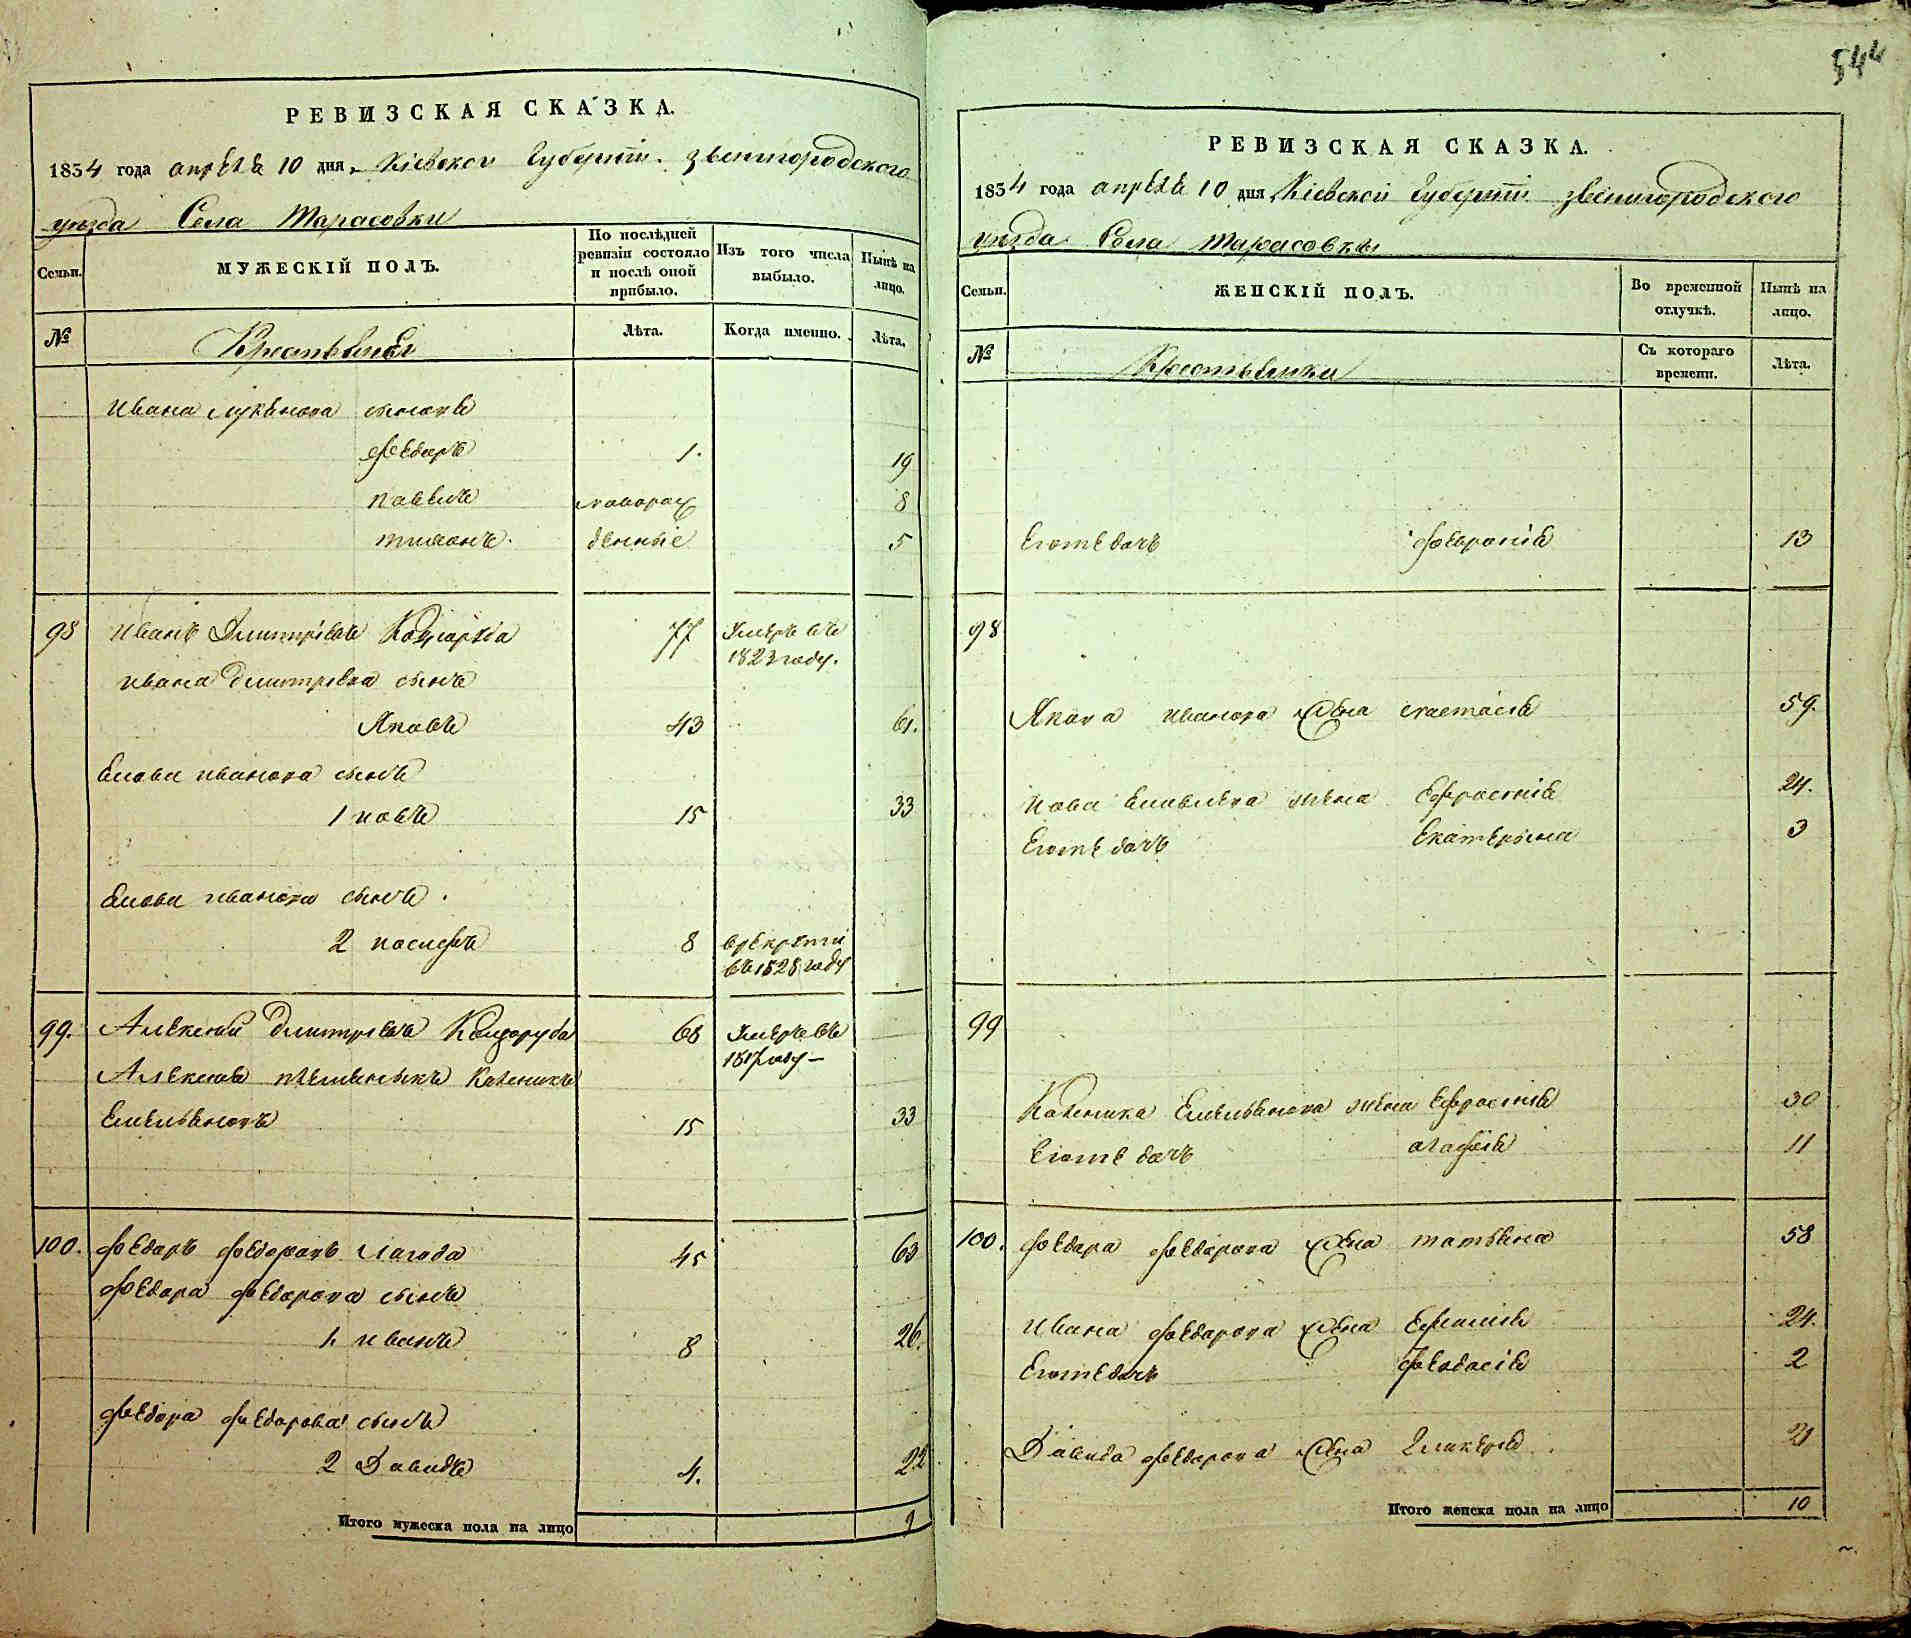 РЕВИЗСКАЯ СКАЗКА.
1834 года апреля 10 дня, Кіевской Губерніи. звенигородского
уезда Села Тарасовки
Семьи.
МУЖЕСКІЙ ПОЛЪ.
По послѣдней ревизіи состояло и послѣ оной прибыло.
Изъ того числа выбыло.
Нынѣ на лицо.
№
Крестьяне
Лѣта.
Когда именно.
Лѣта.
Ивана сыновя
федоръ 1. 19
павелъ новорож 8
тимонъ. денные 5
98 Иванъ Дмитріевъ 77 Умеръ въ
1823 году.
ивана дмитріева сынъ
Яковъ 43 61.
иванова сынъ
1 15 33
иванова сынъ.
2 иосифъ 8 врекруты
въ 1828 году
99. Алексей Дмитріевъ 68 Умеръ въ
1817 году
Алексея племеникъ Каленикъ
Емельяновъ 15 33
100. федоръ федоровъ Лагода 45 63
федора федорова сынъ
1. иванъ 8 26.
федора федорова сынъ
2 Давидъ 4. 22
Итого мужеска пола на лицо 9
544
РЕВИЗСКАЯ СКАЗКА.
1834 года апреля 10 дня, Кіевской Губерніи звенигородского
уезда Села Тарасовки
Семьи.
ЖЕНСКІЙ ПОЛЪ.
Во временной отлучкѣ.
Нынѣ на лицо.
№
Крестьянки
Съ котораго времени.
Лѣта.
Егоже дочь февронія 13
98
Якова иванова жена настасія 59.
жена Ефросинія 24.
Егоже дочь Екатерина 3
99
Каленика Емельянова жена Ефросинія 30
Егоже дочь агафія 11
100. федора федорова жена татьяна 58
Ивана федорова жена 24.
Егоже дочь феодосія 2
Давида федорова жена Гликерія 21
Итого женска пола на лицо 10